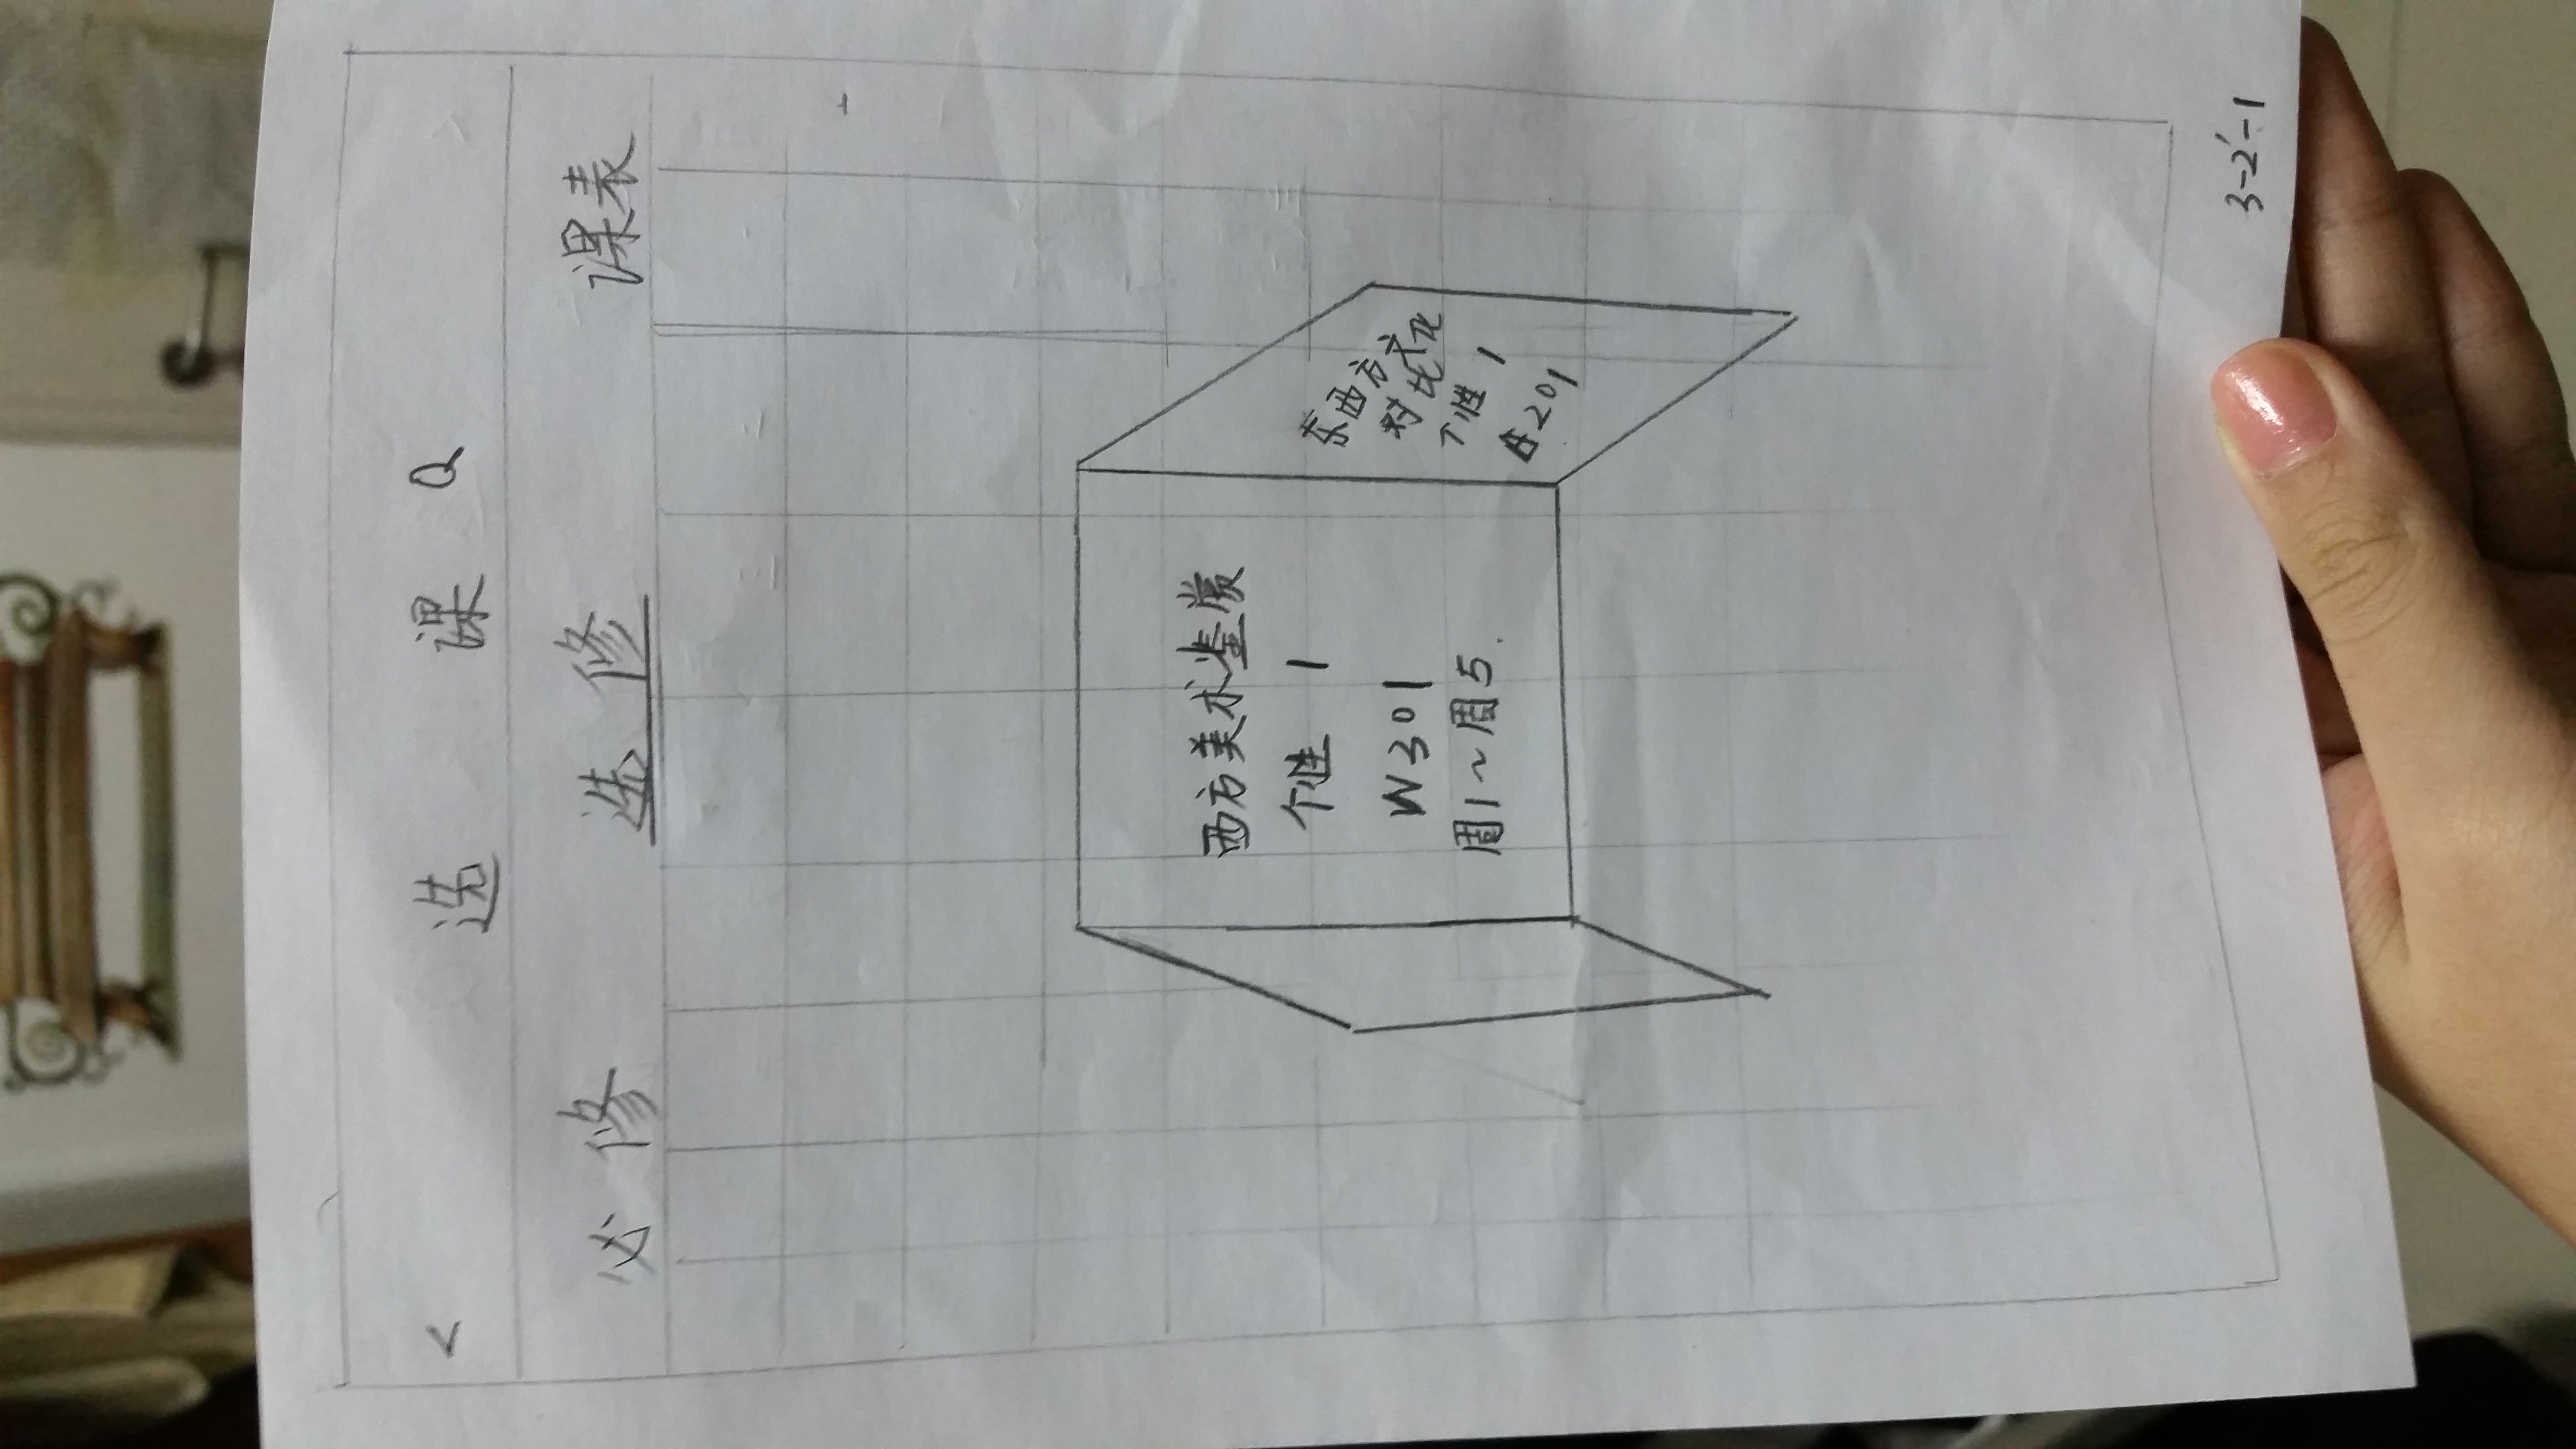 < 选 课 Q
必修 选修 课表
西方美术鉴赏
个性 1
W301
周1~周5.
东西方文化
对比
个性 1
E201
3-2'-1